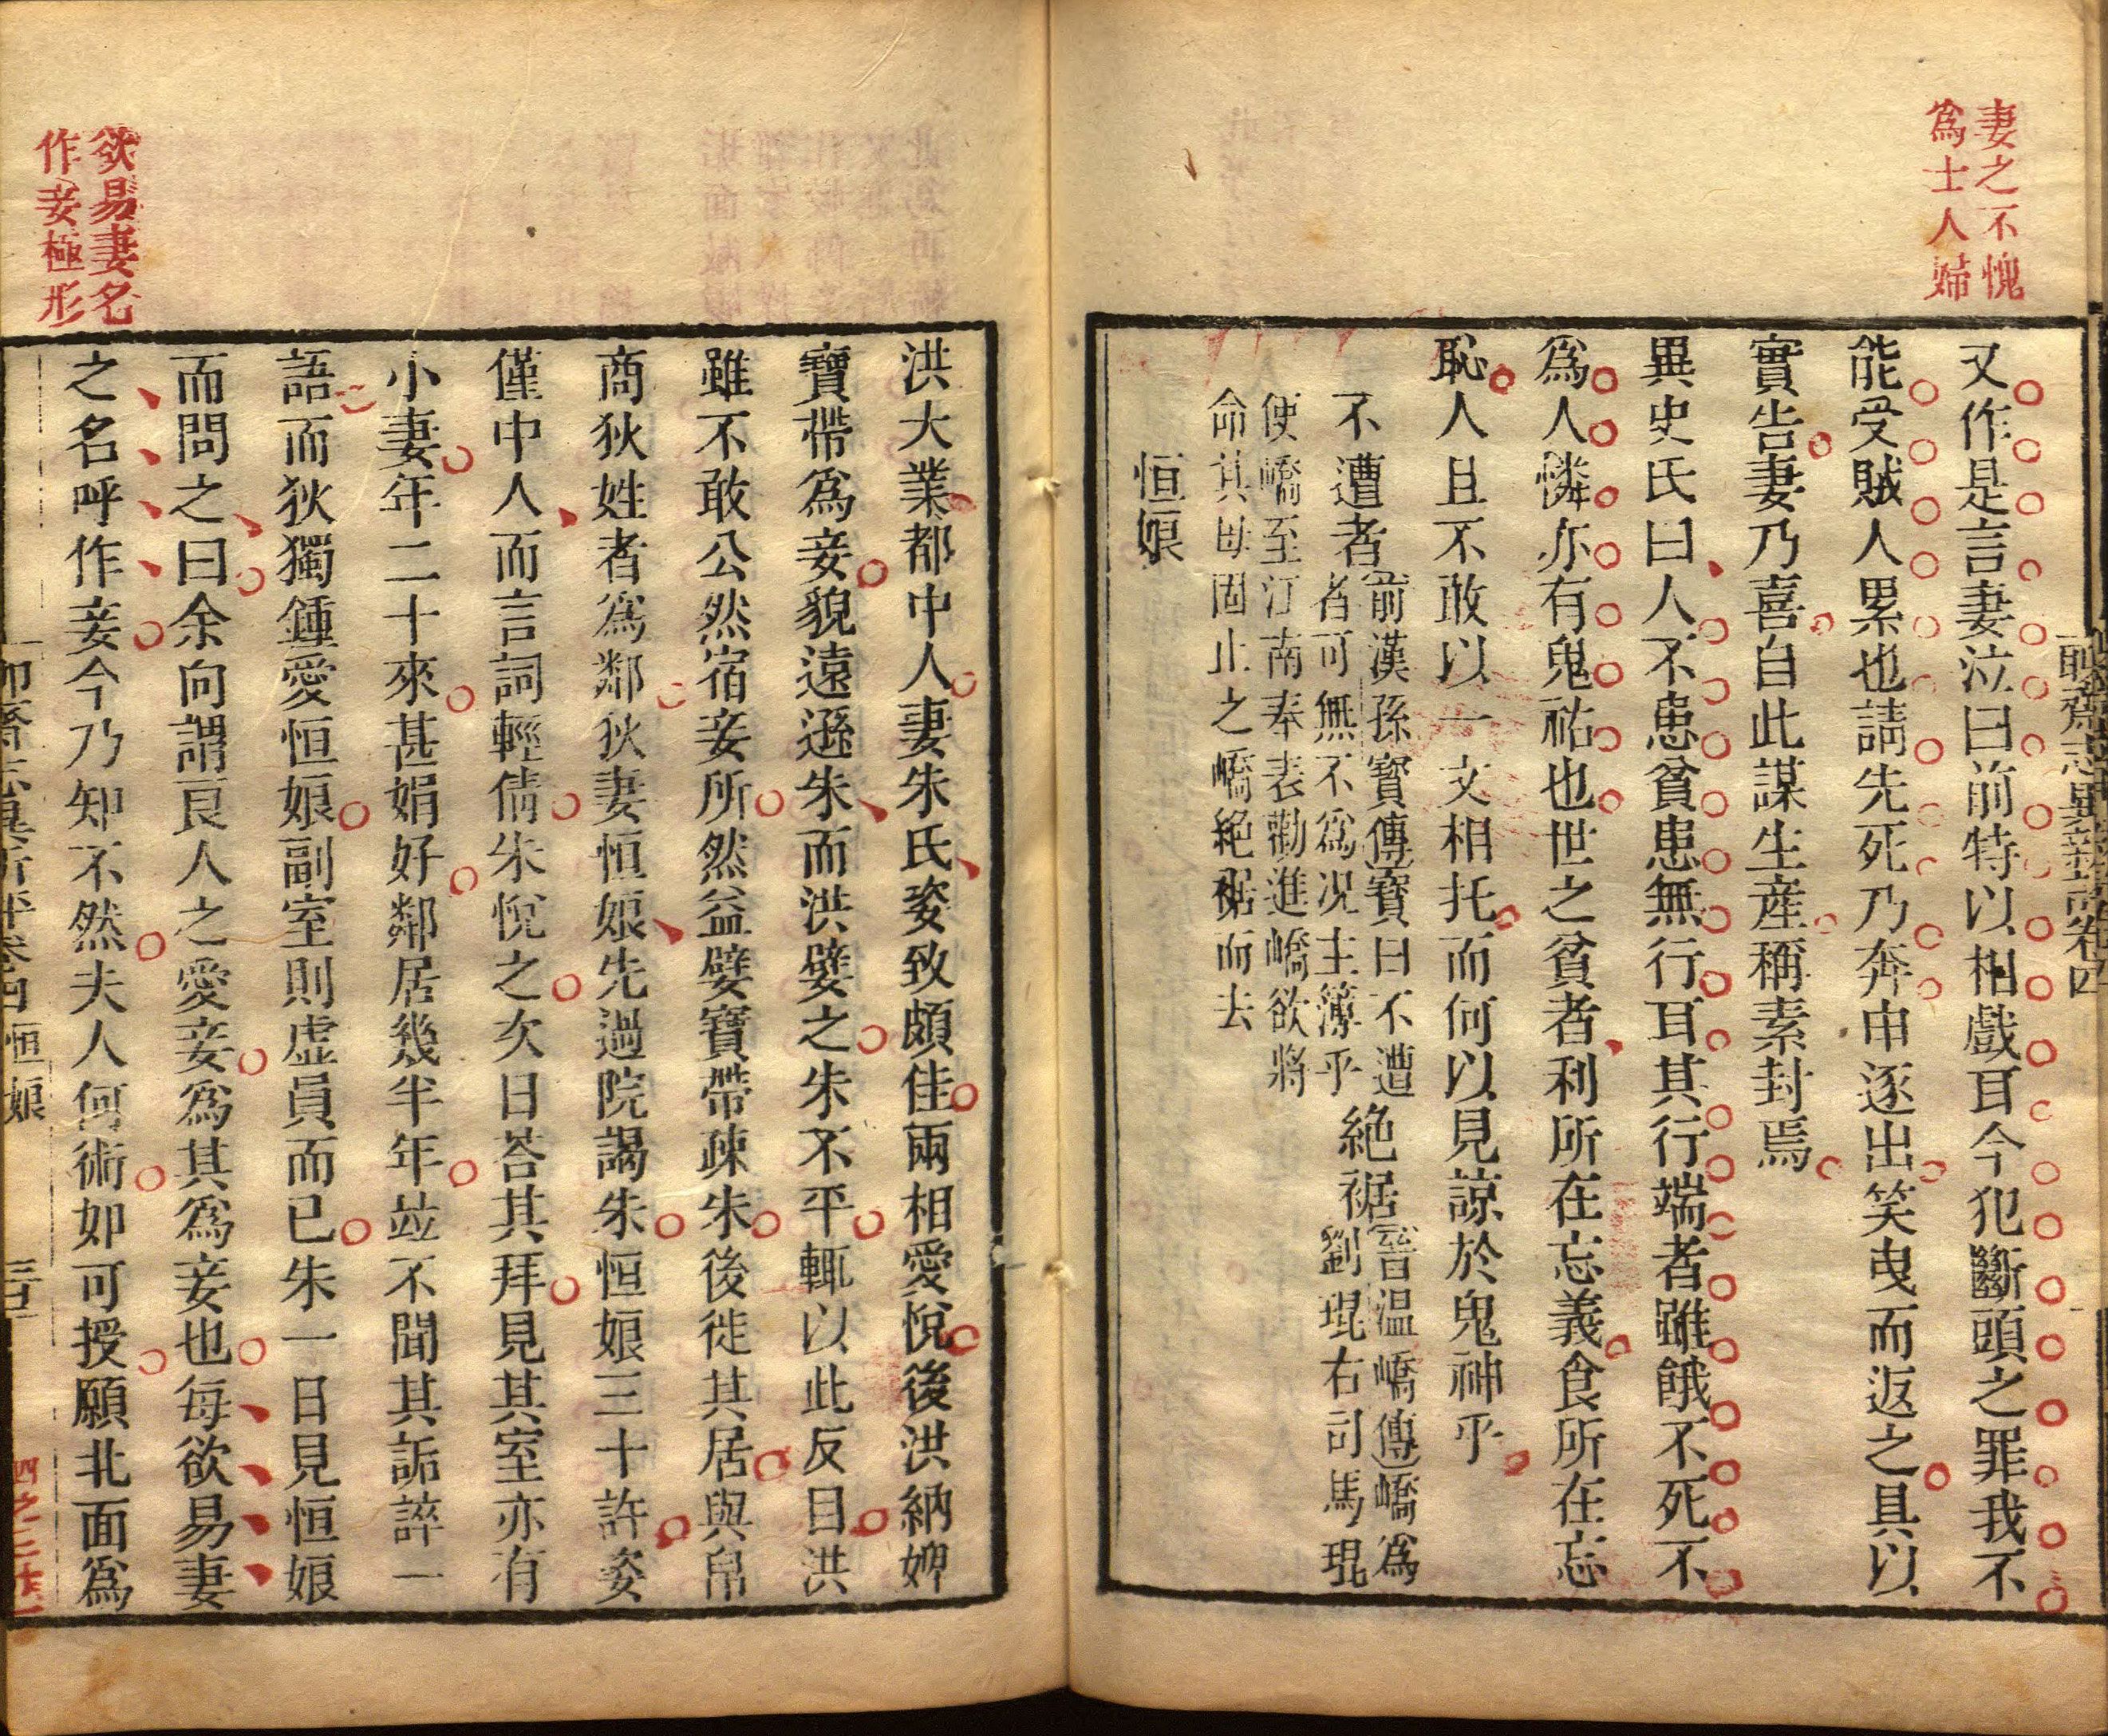 妻之不愧
為士人婦
又作是言妻泣曰前特以相戲耳今犯斷頭之罪我不
能受賊人累也請先死乃奔申逐出笑曳而返之具以
實告妻乃喜自此謀生產稱素封焉
異史氏曰人不患貧患無行耳其行端者雖餓不死不
為人憐亦有鬼祐也世之貧者利所在忘義食所在忘
恥人且不敢以一文相托而何以見諒於鬼神乎
不遭者前漢孫寶傳寶曰不遭者可無不為况主簿乎絕裾晉温嶠傳嶠為劉琨右司馬琨
使嶠至江南奉表勸進嶠欲將
命其母固止之嶠絕裾而去
恒娘
洪大業都中人妻朱氏姿致頗佳兩相愛悅後洪納婢
寶帶為妾貌遠遜朱而洪嬖之朱不平輒以此反目洪
雖不敢公然宿妾所然益嬖寶帶疎朱後徙其居與帛
商狄姓者為鄰狄妻恒娘先過院謁朱恒娘三十許姿
僅中人而言詞輕倩朱悅之次日答其拜見其室亦有
小妻年二十來甚娟好鄰居幾半年並不聞其詬誶一
語而狄獨鍾愛恒娘副室則虛員而已朱一日見恒娘
而問之曰余向謂良人之愛妾為其為妾也每欲易妻
之名呼作妾今乃知不然夫人何術如可授願北面為
欲易妻名
作妾極形
恒娘